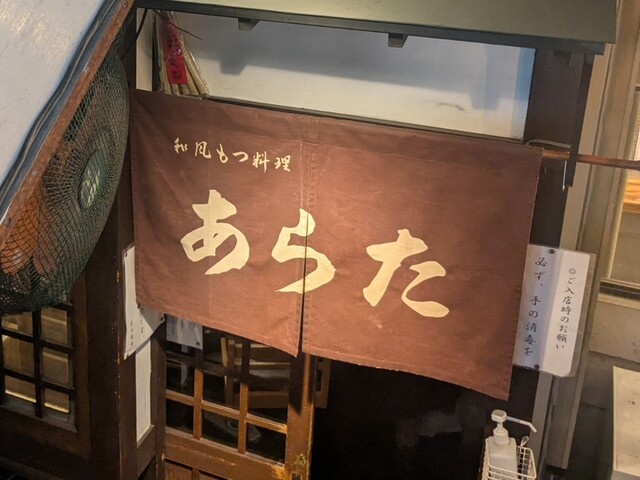 和風もつ料理
あらた
◎ご入店時のお願い
必ず、手の消毒を